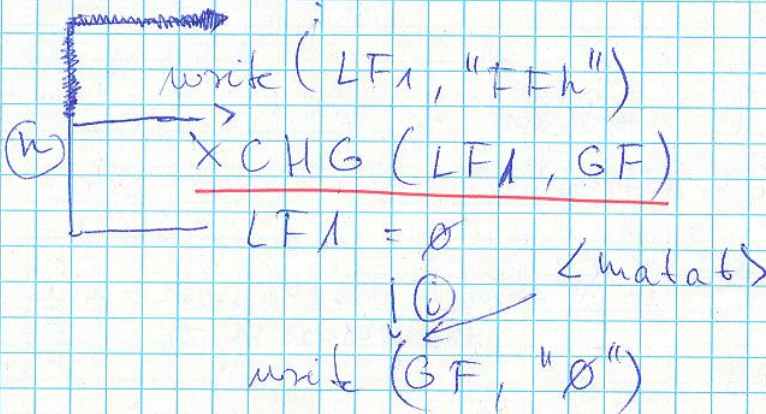 write (LF1, "FFh")
(n)
XCHG (LF1, GF)
LF1 = ∅
<matat>
(i)
write (GF, "∅")